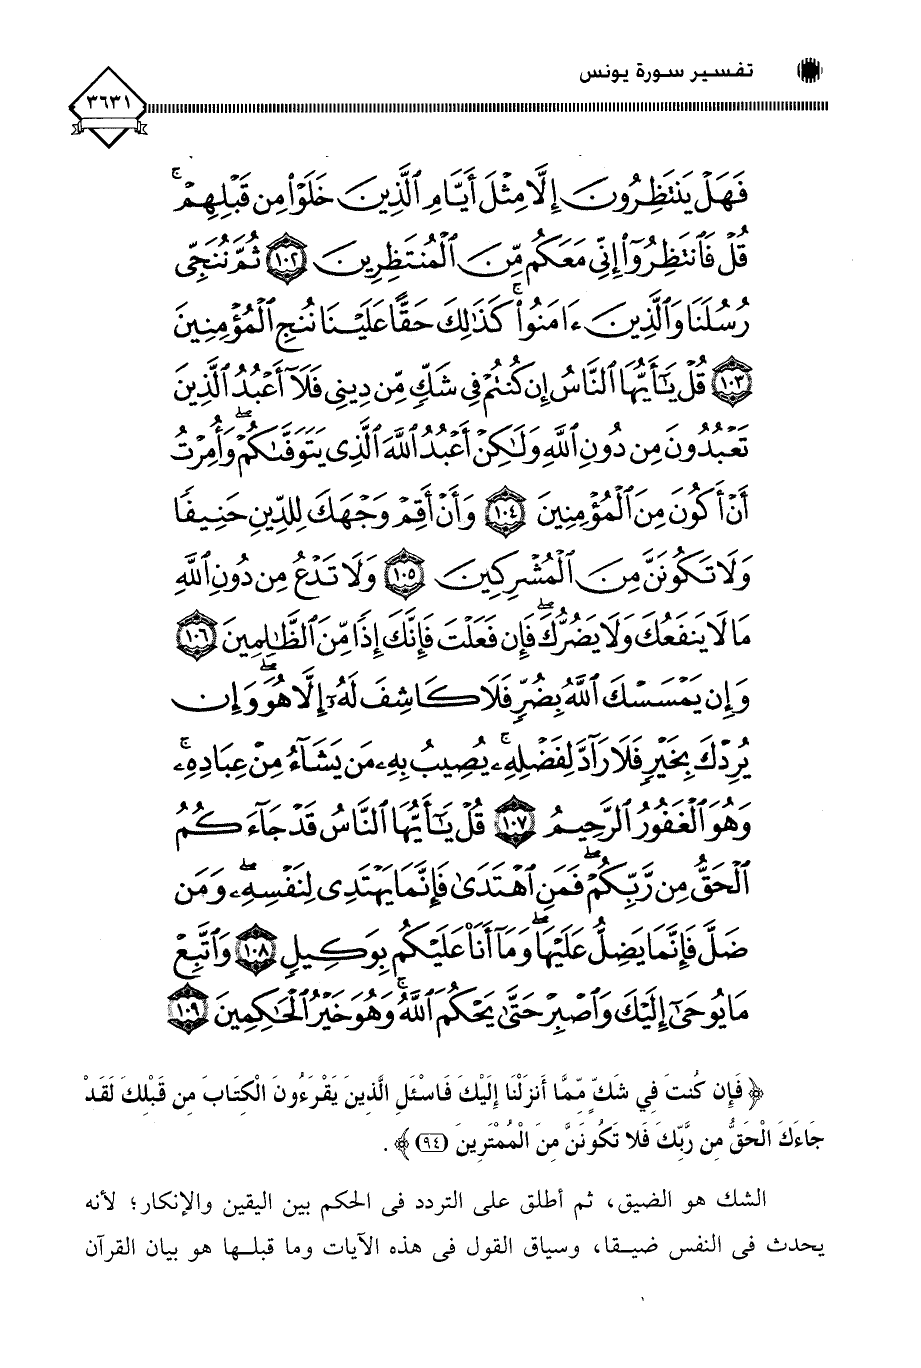 تفسير سورة يونس
٣٦٣١
فَهَلْ يَنتَظِرُونَ إِلَّا مِثْلَ أَيَّامِ ٱلَّذِينَ خَلَوْا۟ مِن قَبْلِهِمْ ۚ
قُلْ فَٱنتَظِرُوٓا۟ إِنِّى مَعَكُم مِّنَ ٱلْمُنتَظِرِينَ ١٠٢ ثُمَّ نُنَجِّى
رُسُلَنَا وَٱلَّذِينَ ءَامَنُوا۟ ۚ كَذَٰلِكَ حَقًّا عَلَيْنَا نُنجِ ٱلْمُؤْمِنِينَ
١٠٣ قُلْ يَٰٓأَيُّهَا ٱلنَّاسُ إِن كُنتُمْ فِى شَكٍّ مِّن دِينِى فَلَآ أَعْبُدُ ٱلَّذِينَ
تَعْبُدُونَ مِن دُونِ ٱللَّهِ وَلَٰكِنْ أَعْبُدُ ٱللَّهَ ٱلَّذِى يَتَوَفَّىٰكُمْ ۖ وَأُمِرْتُ
أَنْ أَكُونَ مِنَ ٱلْمُؤْمِنِينَ ١٠٤ وَأَنْ أَقِمْ وَجْهَكَ لِلدِّينِ حَنِيفًا
وَلَا تَكُونَنَّ مِنَ ٱلْمُشْرِكِينَ ١٠٥ وَلَا تَدْعُ مِن دُونِ ٱللَّهِ
مَا لَا يَنفَعُكَ وَلَا يَضُرُّكَ ۖ فَإِن فَعَلْتَ فَإِنَّكَ إِذًا مِّنَ ٱلظَّٰلِمِينَ ١٠٦
وَإِن يَمْسَسْكَ ٱللَّهُ بِضُرٍّ فَلَا كَاشِفَ لَهُۥٓ إِلَّا هُوَ ۖ وَإِن
يُرِدْكَ بِخَيْرٍ فَلَا رَآدَّ لِفَضْلِهِۦ ۚ يُصِيبُ بِهِۦ مَن يَشَآءُ مِنْ عِبَادِهِۦ ۚ
وَهُوَ ٱلْغَفُورُ ٱلرَّحِيمُ ١٠٧ قُلْ يَٰٓأَيُّهَا ٱلنَّاسُ قَدْ جَآءَكُمُ
ٱلْحَقُّ مِن رَّبِّكُمْ ۖ فَمَنِ ٱهْتَدَىٰ فَإِنَّمَا يَهْتَدِى لِنَفْسِهِۦ ۖ وَمَن
ضَلَّ فَإِنَّمَا يَضِلُّ عَلَيْهَا ۖ وَمَآ أَنَا۠ عَلَيْكُم بِوَكِيلٍ ١٠٨ وَٱتَّبِعْ
مَا يُوحَىٰٓ إِلَيْكَ وَٱصْبِرْ حَتَّىٰ يَحْكُمَ ٱللَّهُ ۚ وَهُوَ خَيْرُ ٱلْحَٰكِمِينَ ١٠٩
﴿ فَإِن كُنتَ فِي شَكٍّ مِّمَّا أَنزَلْنَا إِلَيْكَ فَاسْئَلِ الَّذِينَ يَقْرَءُونَ الْكِتَابَ مِن قَبْلِكَ لَقَدْ
جَاءَكَ الْحَقُّ مِن رَّبِّكَ فَلا تَكُونَنَّ مِنَ الْمُمْتَرِينَ (٩٤) ﴾ .
الشك هو الضيق، ثم أطلق على التردد فى الحكم بين اليقين والإنكار؛ لأنه
يحدث فى النفس ضيقا، وسياق القول فى هذه الآيات وما قبلها هو بيان القرآن